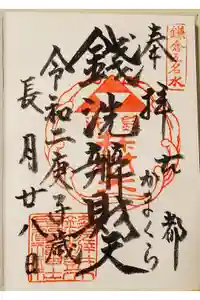 鎌倉五名水
奉拝
古都
かまくら
銭洗辨財天
令和二庚子歳
長月廿八日